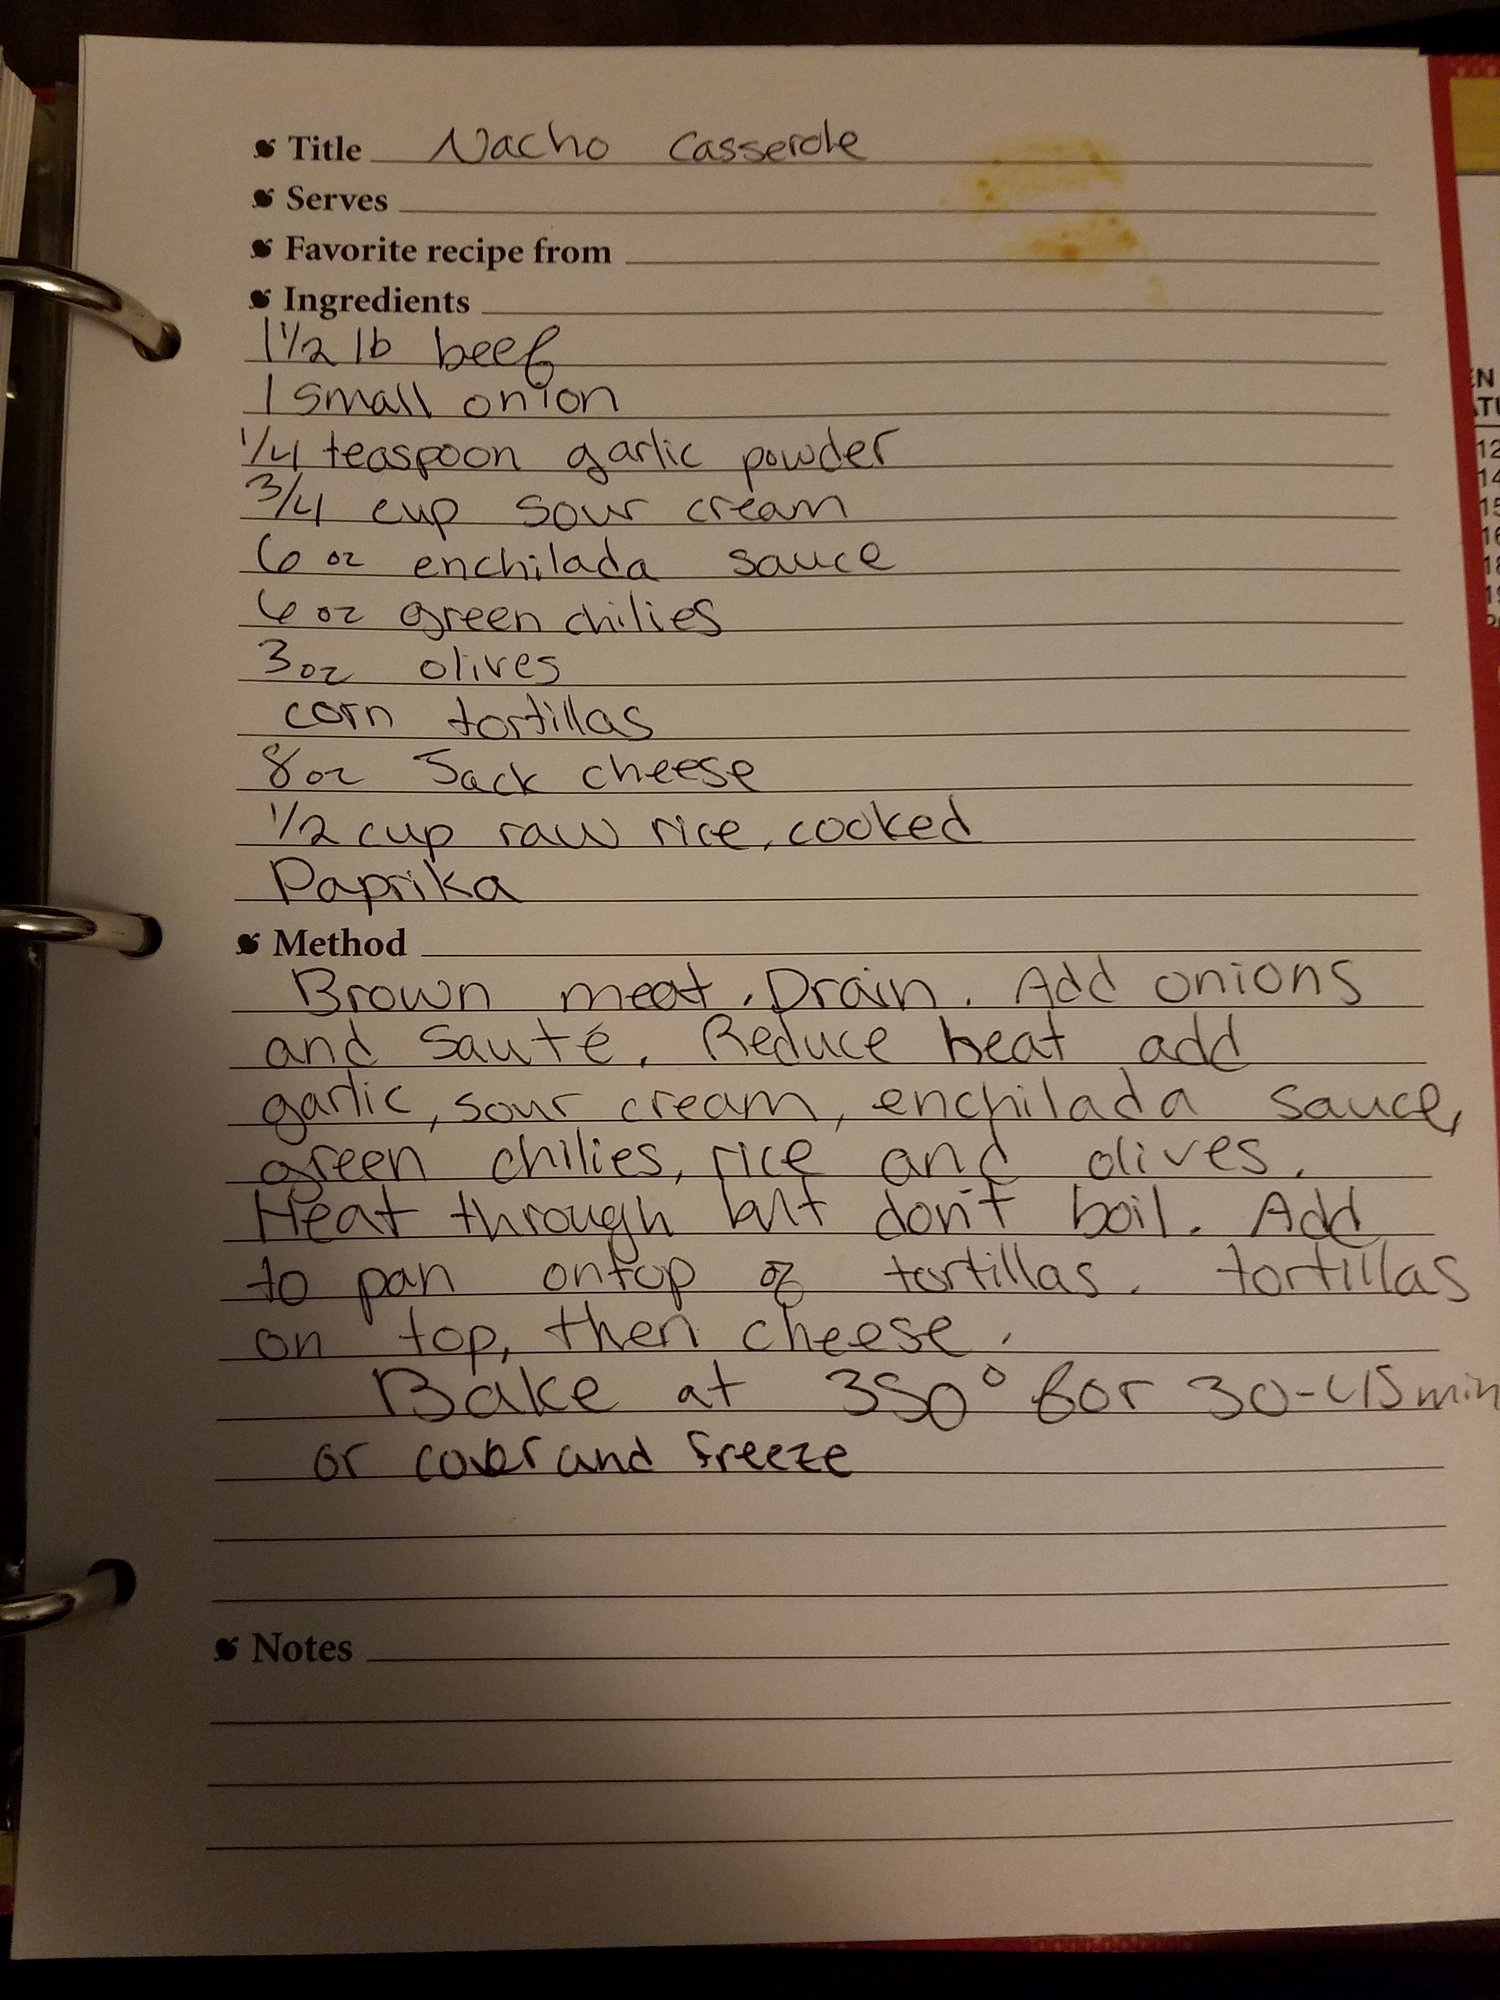 Title Nacho Casserole
Serves
Favorite recipe from
Ingredients
1 1/2 lb beef
1 small onion
1/4 teaspoon garlic powder
3/4 cup sour cream
6 oz enchilada sauce
6 oz green chilies
3 oz olives
corn tortillas
8 oz Jack cheese
1/2 cup raw rice, cooked
Paprika
Method
Brown meat. Drain. Add onions
and sauté. Reduce heat add
garlic, sour cream, enchilada sauce,
green chilies, rice and olives.
Heat through but don't boil. Add
to pan ontop of tortillas. tortillas
on top, then cheese.
Bake at 350° for 30-45 min
or cover and freeze
Notes
EN
ATU
12
14
15
16
18
19